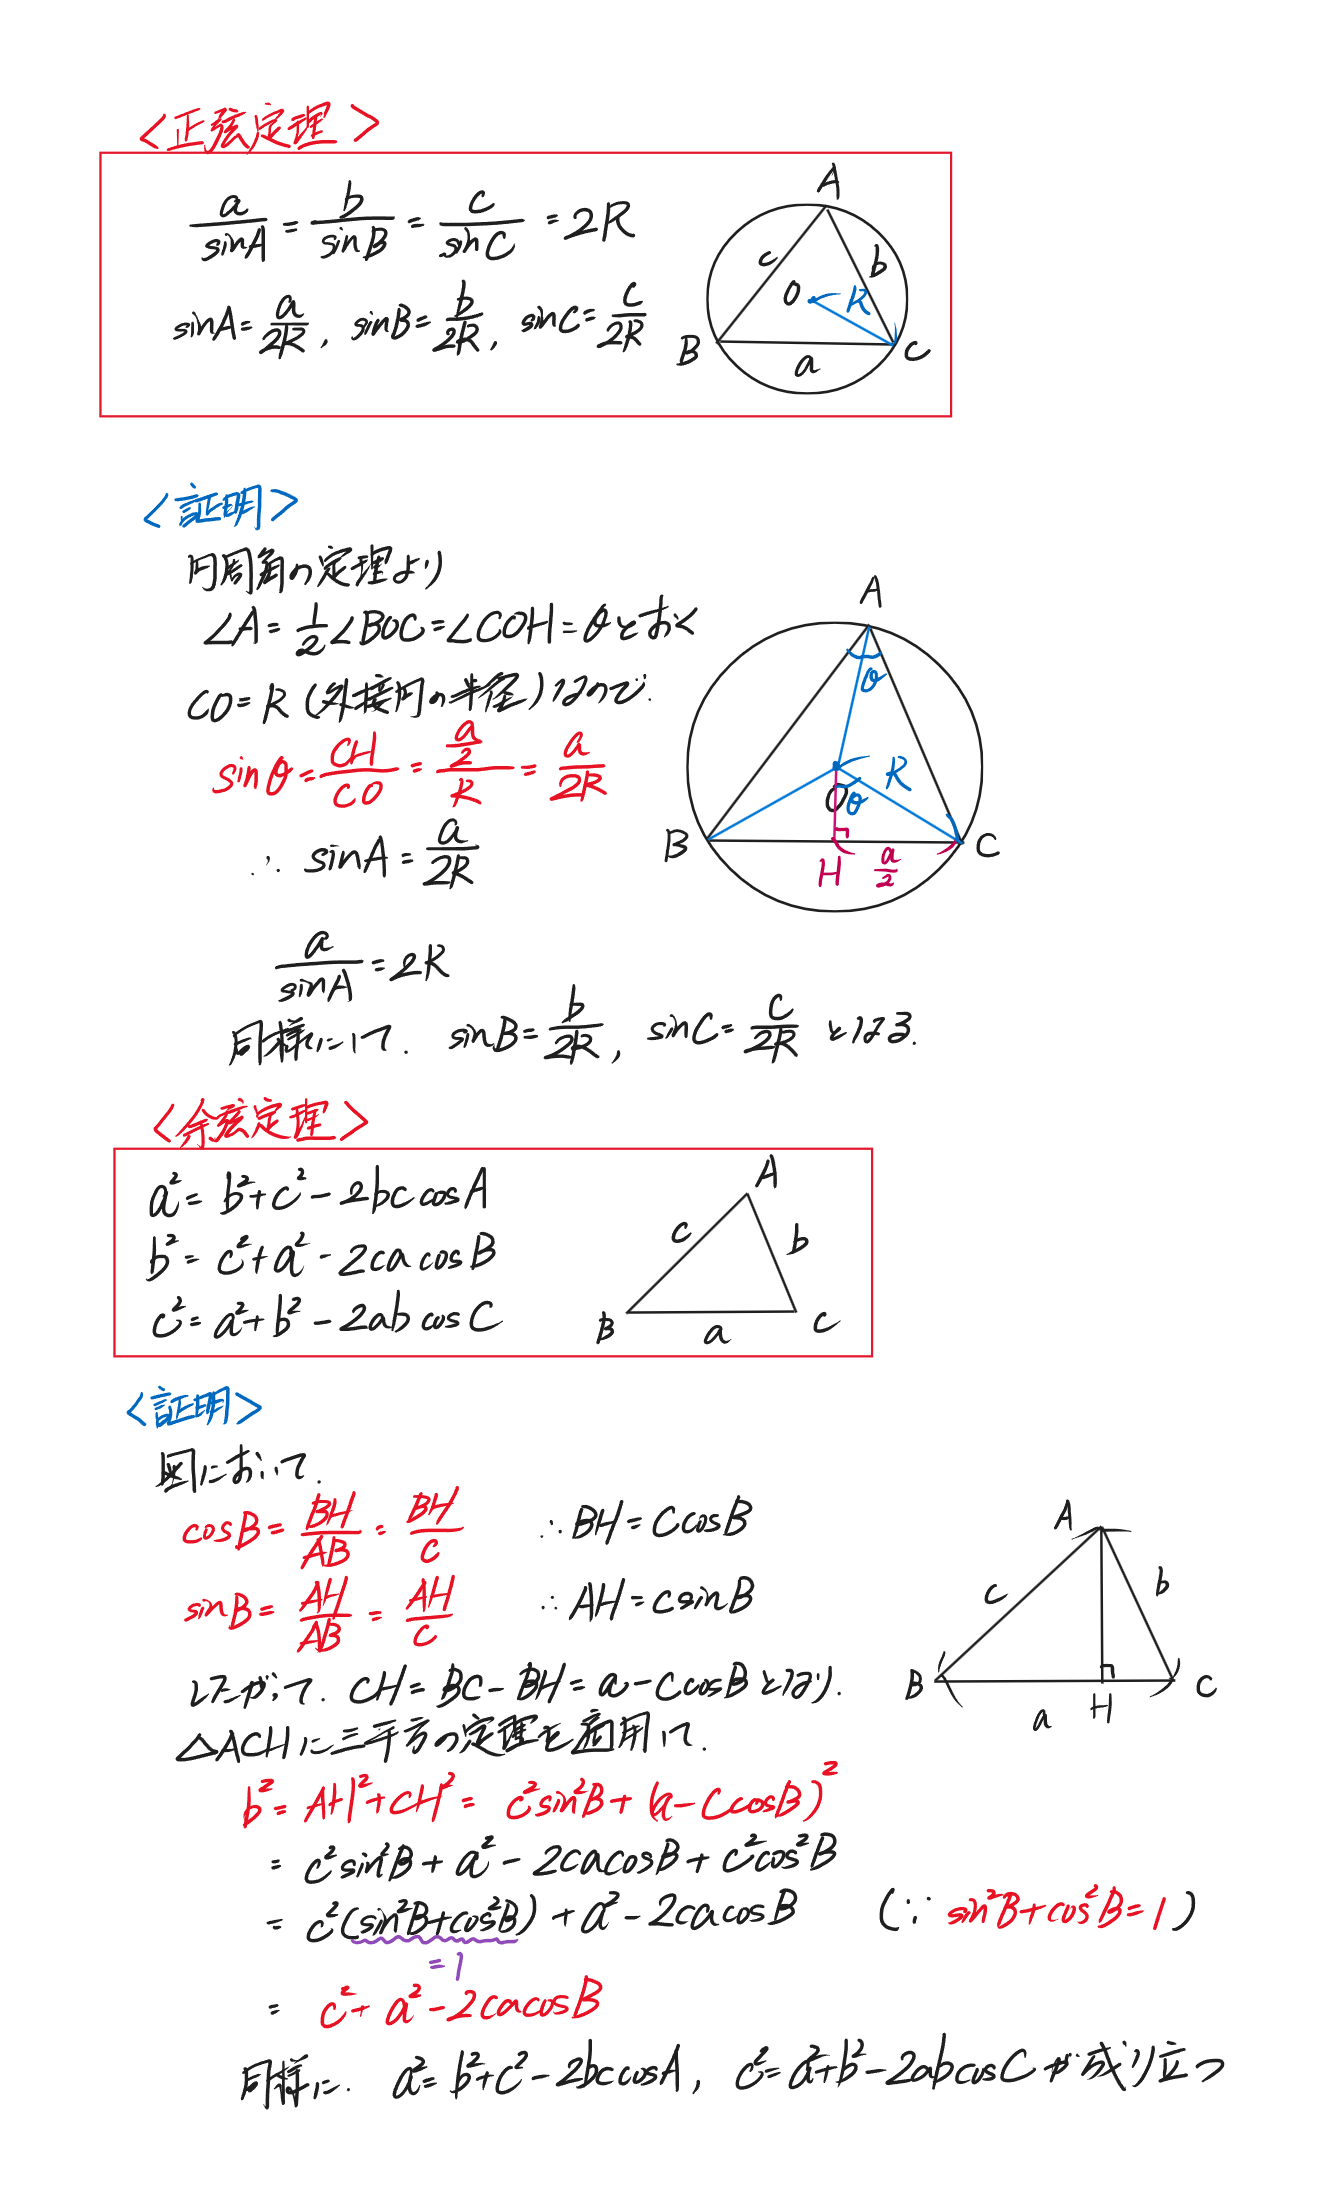 <正弦定理>
a/sinA = b/sinB = c/sinC = 2R
sinA = a/2R , sinB = b/2R , sinC = c/2R
A
c
b
O
R
B
a
C
<証明>
円周角の定理より
∠A = 1/2∠BOC = ∠COH = θとおく
CO = R (外接円の半径) なので.
sinθ = CH/CO = (a/2)/R = a/2R
∴ sinA = a/2R
a/sinA = 2R
同様にして. sinB = b/2R , sinC = c/2R となる.
A
θ
R
O
θ
B
C
H
a/2
<余弦定理>
a² = b² + c² - 2bc cosA
b² = c² + a² - 2ca cosB
c² = a² + b² - 2ab cosC
A
c
b
B
a
C
<証明>
図において.
cosB = BH/AB = BH/c ∴ BH = c cosB
sinB = AH/AB = AH/c ∴ AH = c sinB
したがって. CH = BC - BH = a - c cosB となり.
△ACHに三平方の定理を適用して.
A
c
b
B
C
a
H
b² = AH² + CH² = c² sin²B + (a - c cosB)²
= c² sin²B + a² - 2ca cosB + c² cos²B
= c² (sin²B + cos²B) + a² - 2ca cosB (∵ sin²B + cos²B = 1)
= 1
= c² + a² - 2ca cosB
同様に. a² = b² + c² - 2bc cosA , c² = a² + b² - 2ab cosC が成り立つ